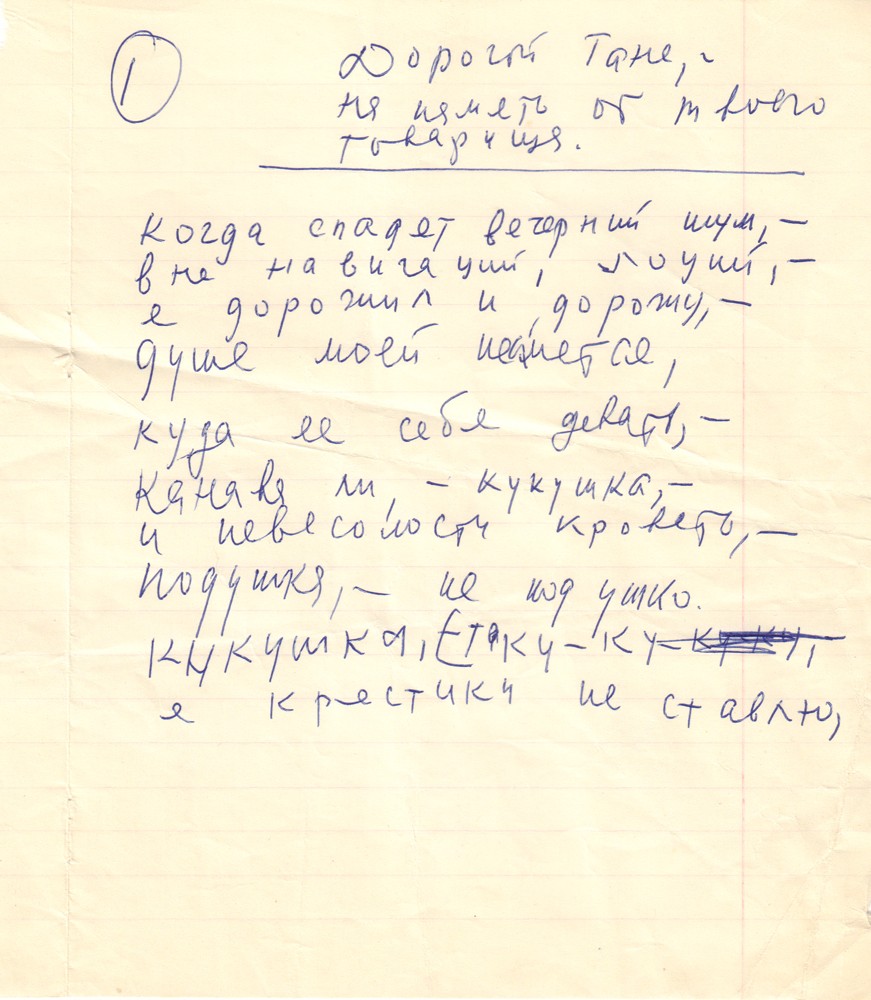 1
Дорогой Тане,-
на память от твоего
товарища.
когда спадет вечерний шум,-
вне навигаций, лоций,-
я дорожил и дорожу,-
душе моей неймется,
куда ей себя девать,-
канава ли, - кукушка,-
и невесолости кровать,-
подушка,- не под ушко.
кукушка, ку-ку-
я крестики не ставлю,